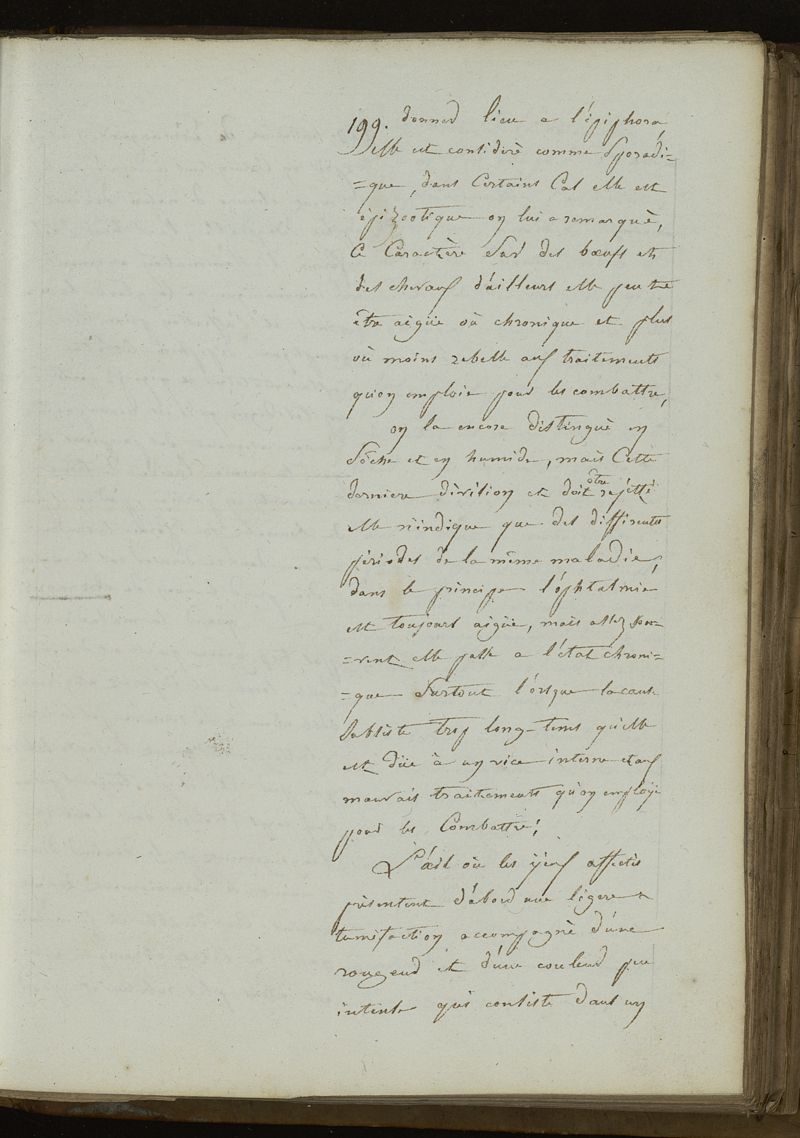 199. donner lieu a l'épiphora,
Elle est considéré comme Sporadi=
=que, dans Certains Cas elle est
épizootique on lui a remarqué,
Ce Caractère Sur des bœufs et
des chevaux d'ailleurs elle peut
être aigüe où chronique et plus
où moins rebelle aux traitements
qu'on emploie pour les combattre,
on la encore distingué en
Séche et en humide, mais Cette
derniere division et doit être rejétté
elle n'indique que des differents
périodes de la même maladie,
dans le principe l'ophtalmie
est toujours aigüe, mais assez Sou=
=vent elle passe a l'état chroni=
=que Surtout l'orsque la cause
Subsiste trop long-tems qu'elle
est düe à un vice interne et aux
mauvais traitements qu'on employe
pour les Combattre;
L'œil où les ÿeux affectés
présentent d'abord une légere
tumifaction accompagné d'une
rougeur et d'une couleur peu
intense qui consiste dans un